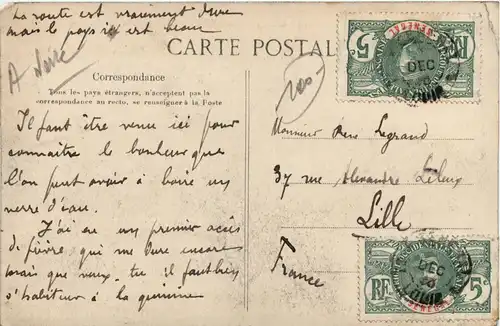 La route est vraiment dure
mais le pays ici est beau
CARTE POSTAL
A Seize
Correspondance
Tous les pays étrangers, n'acceptent pas la
correspondance au recto, se renseigner à la Poste
100-
Il faut être venu ici pour
connaître le bonheur que
l'on peut avoir à boire un
verre d'eau.
J'ai eu un premier accès
de fièvre qui me dure encore
mais que veux-tu il faut bien
s'habituer à la quinine
Monsieur René Legrand
37 rue Alexandre Leleux
Lille
France
RF 5
SENEGAL
DEC
RF 5c
SENEGAL
DEC